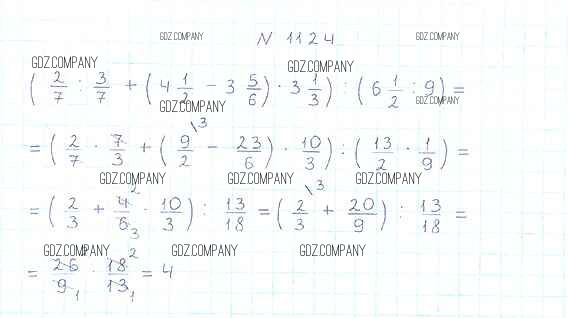 GDZ.COMPANY N 1124 GDZ.COMPANY
GDZ.COMPANY GDZ.COMPANY
( 2/7 : 3/7 + ( 4 1/2 − 3 5/6 ) · 3 1/3 ) : ( 6 1/2 : 9 ) =
GDZ.COMPANY GDZ.COMPANY
= ( 2/7 · 7/3 + ( 9/2 \3 − 23/6 ) · 10/3 ) : ( 13/2 · 1/9 ) =
GDZ.COMPANY GDZ.COMPANY GDZ.COMPANY
= ( 2/3 + 4 2/6 3 · 10/3 ) : 13/18 = ( 2/3 \3 + 20/9 ) : 13/18 =
GDZ.COMPANY GDZ.COMPANY GDZ.COMPANY
= 26/9 1 · 18 2/13 1 = 4